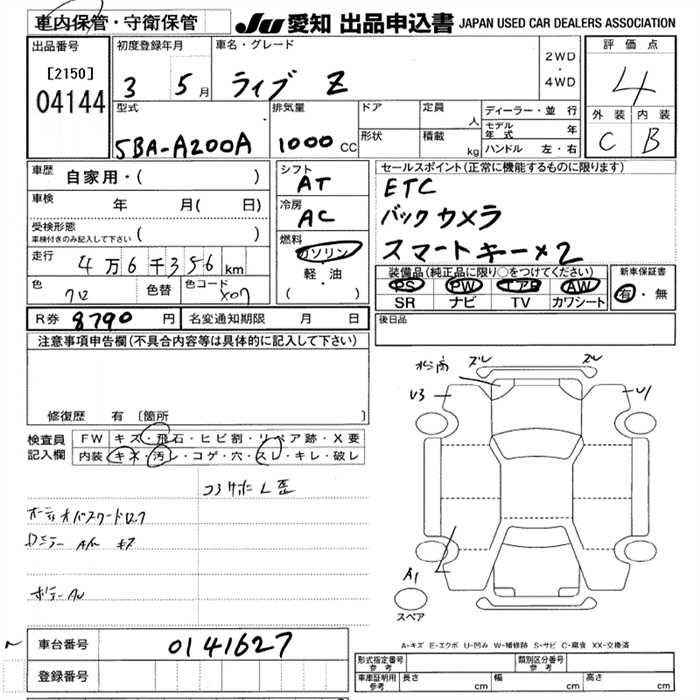 車内保管・守衛保管
JU 愛知 出品申込書 JAPAN USED CAR DEALERS ASSOCIATION
出品番号
[2150]
04144
初度登録年月
3 5 月
車名・グレード
ライブ Z
2WD
・
4WD
評価点
4
外装 内装
C B
型式
5BA-A200A
排気量
1000 CC
ドア
形状
定員
人
積載
kg
ディーラー・並行
モデル年式 年
ハンドル 左・右
車歴 自家用・( )
車検 年 月(日)
受検形態
車検付きのみ記入して下さい ( )
走行 4万6千356km
色 クロ 色替 色コード X07
シフト
AT
冷房
AC
燃料
ガソリン
軽・油
( ・ )
セールスポイント(正常に機能するものに限ります)
ETC
バックカメラ
スマートキー×2
装備品(純正品に限り○をつけてください)
PS PW エアB AW
SR ナビ TV カワシート
新車保証書
有・無
R券 8790 円 名変通知期限 月 日
後日品
注意事項申告欄(不具合内容等は具体的に記入して下さい)
修復歴 有 [箇所
検査員
記入欄
FW キズ・飛石・ヒビ割・リペア跡・X要
内装 キズ・汚レ・コゲ・穴・スレ・キレ・破レ
ズレ ズレ
U3 U1
A1
スペア
A-キズ E-エクボ U-凹み W-補修跡 S-サビ C-腐食 XX-交換済
車台番号 0141627
登録番号
形式指定番号
参考
類別区分番号
参考
車庫証明用
参考
長さ cm 幅 cm 高さ cm